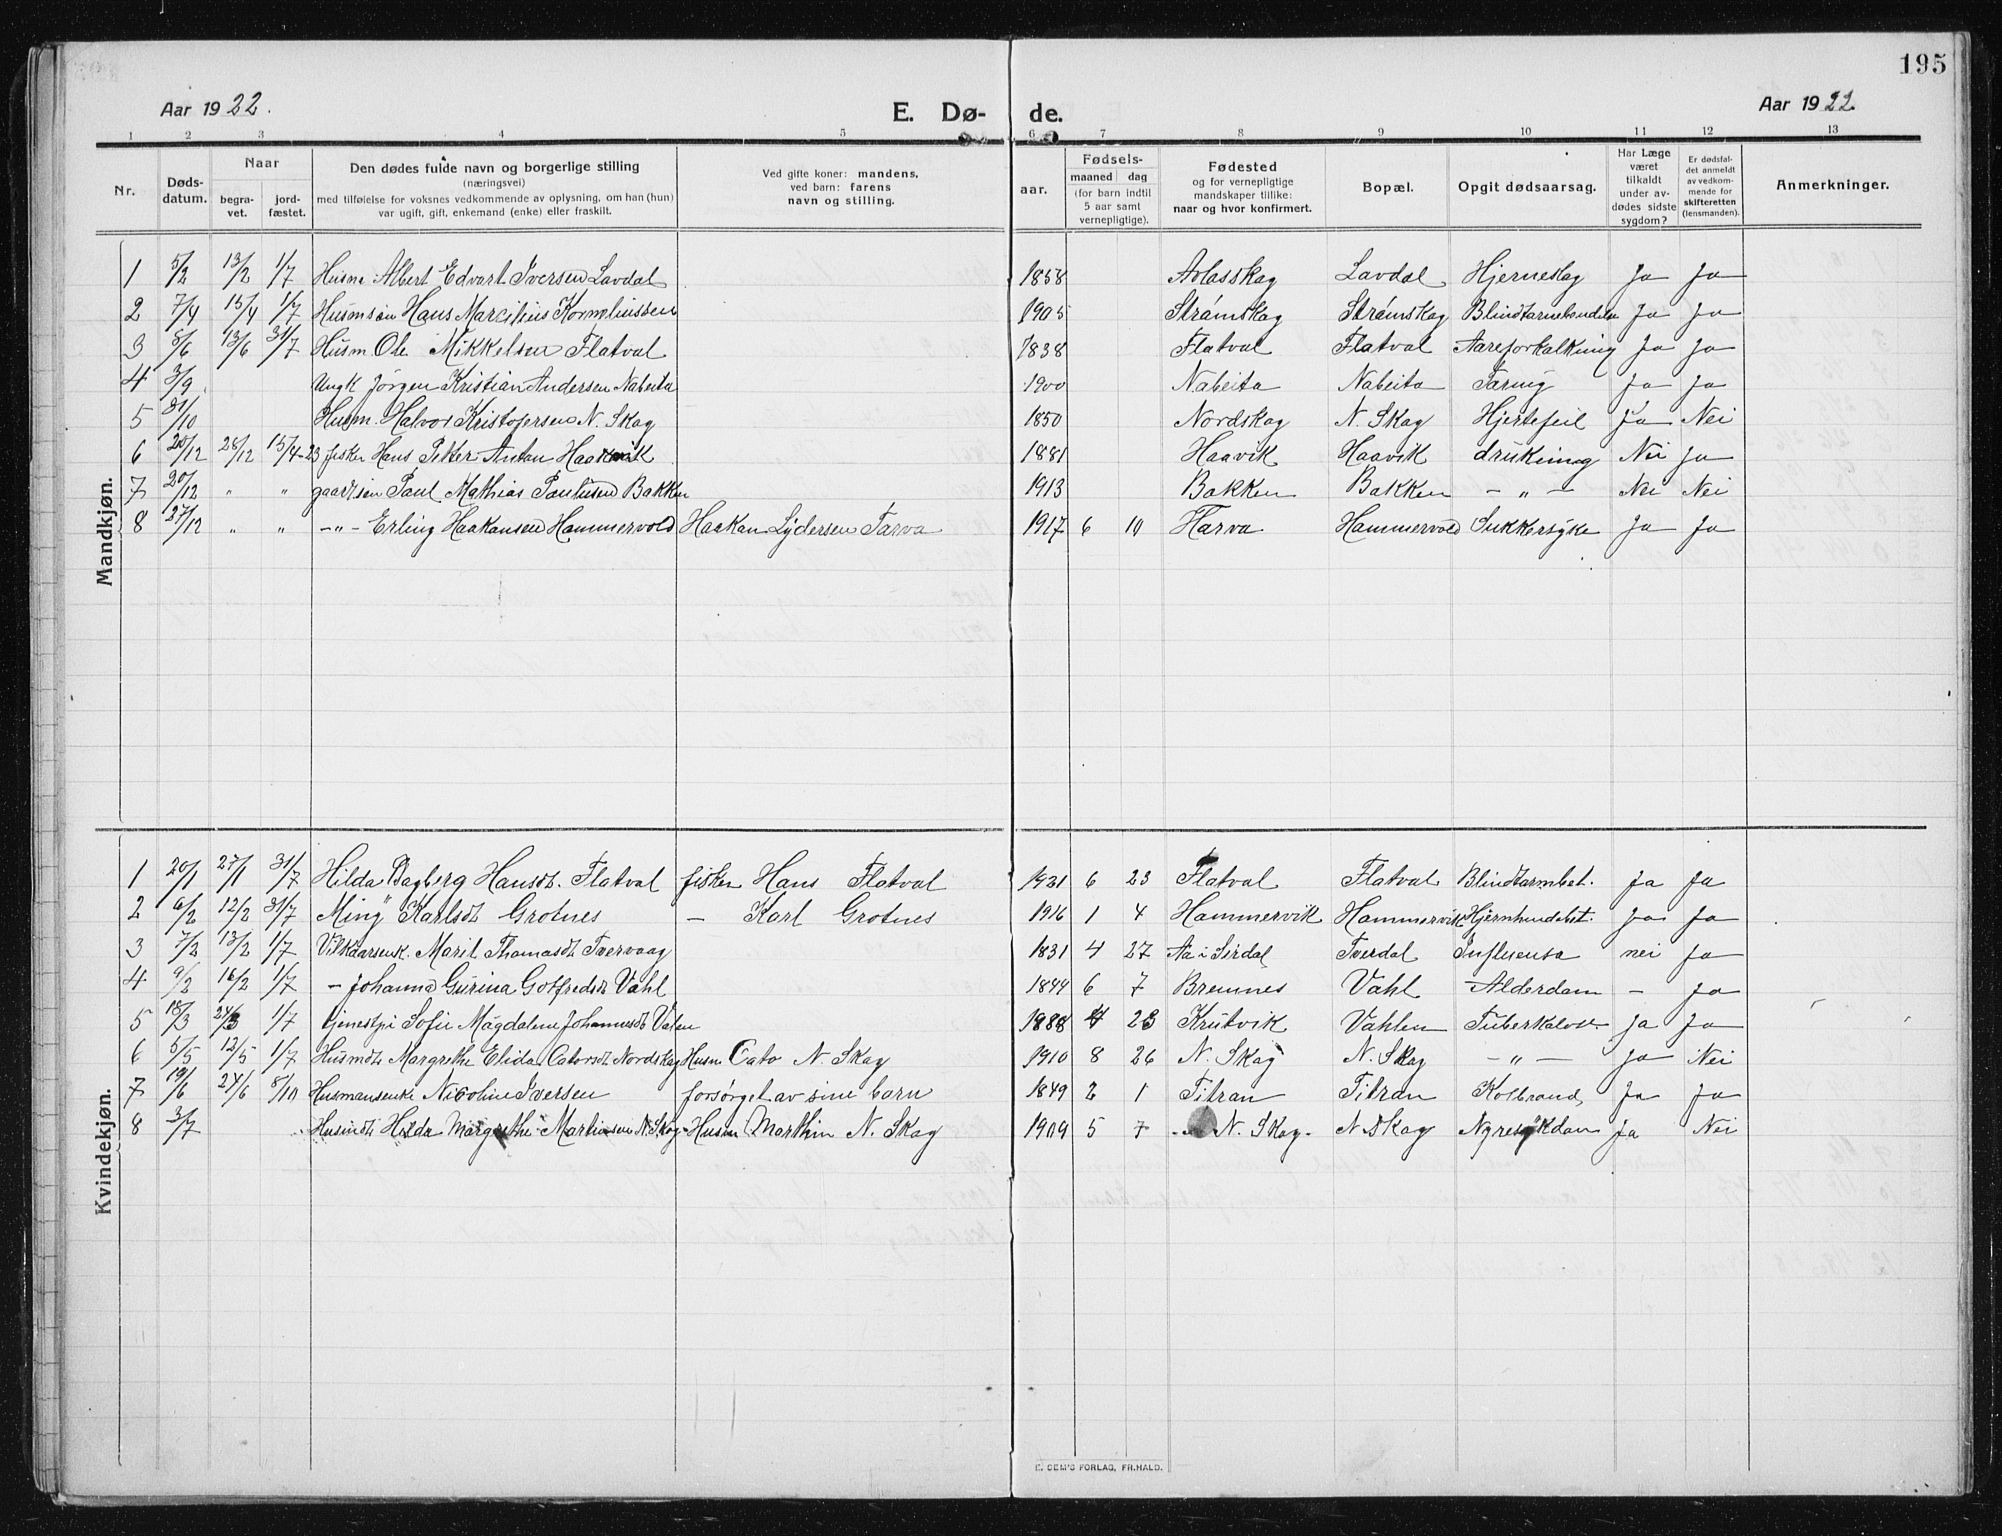 195
Aar 1922. E. Dø- de. Aar 1922.
1 2 3 4 5 6 7 8 9 10 11 12 13
Nr.
Døds-
datum.
Naar
begra-
vet.
jord-
fæstet.
Den dødes fulde navn og borgerlige stilling
(næringsvei)
med tilføielse for voksnes vedkommende av oplysning, om han (hun)
var ugift, gift, enkemand (enke) eller fraskilt.
Ved gifte koner: mandens,
ved barn: farens
navn og stilling.
aar.
Fødsels-
maaned dag
(for barn indtil
5 aar samt
vernepligtige).
Fødested
og for vernepligtige
mandskaper tillike:
naar og hvor konfirmert.
Bopæl.
Opgit dødsaarsag.
Har Læge
været
tilkaldt
under av-
dødes sidste
sygdom?
Er dødsfal-
det anmeldt
av vedkom-
mende for
skifteretten
(lensmanden).
Anmerkninger.
Mandkjøn.
1 5/2 13/2 1/7 Husm Albert Edvart Iversen Lavdal 1858 Lavdal Hjerneslag Ja Ja
2 7/4 15/4 1/7 Husmsøn Hans Marcilius 1905 Strømskag Strømskag Ja Ja
3 8/6 13/6 31/7 Husm Ole Mikkelsen Flatval 1838 Flatval Flatval Aareforkalkning Ja Ja
4 3/9 Ungk Jørgen Kristian Andersen Nabeita 1900 Nabeita Nabeita Tæring Ja Ja
5 31/10 Husm. Halvor Kristofersen N. Skag 1850 Nordskag N. Skag Hjertefeil Ja Nei
6 20/12 28/12 15/4-23 fisker Hans Petter Anton Haavik 1881 Haavik Haavik drukning Nei Ja
7 20/12 " " gaardsøn Paul Mathias Paulsen Bakken 1913 Bakken Bakken — " — Nei Nei
8 27/12 " " -"- Erling Haakansen Hammervold Haakan Lydersen Tarva 1917 6 10 Tarva Hammervold Sukkersyke Ja Ja
Kvindekjøn.
1 20/1 27/1 31/7 Hilda Dagberg Hansdt. Flatval fisker Hans Flatval 1921 6 23 Flatval Flatval Blindtarmbet. Ja Ja
2 6/2 12/2 31/7 Miny Karlsdt Grotnes — Karl Grotnes 1916 1 4 Hammervik Hammervik Hjernhindebet. Ja Ja
3 7/2 13/2 1/7 Vilkaarsenk. Marit Thomasdt Tvervaag 1831 4 27 Aa i Sirdal Tverdal Influensa nei Ja
4 9/2 16/2 1/7 - Johanna Gurina Gotfredsdt Vahl 1844 6 7 Bremnes Vahl Alderdom — Ja
5 18/3 24/3 1/7 tjenestpi Sofie Magdalene Johannesdt 1888 4 Krutvik Vahlen Tuberkulose Ja Ja
6 5/5 12/5 1/7 Husmdt Margrethe Elida Catorsdt Nordskag Husm Cato N. Skag 1910 8 26 N. Skag N. Skag — " — Ja Nei
7 19/6 24/6 8/10 Husmansenke Nicoline Iversen forsørget av sine barn 1849 2 1 Titran Titran Kolbrand Ja Ja
8 3/7 Husmdt Hilda Margrethe Martinsen N. Skag Husm Marthin N. Skag 1909 5 7 N. Skag N. Skag Ja Nei
E. SEM'S FORLAG, FR.HALD.